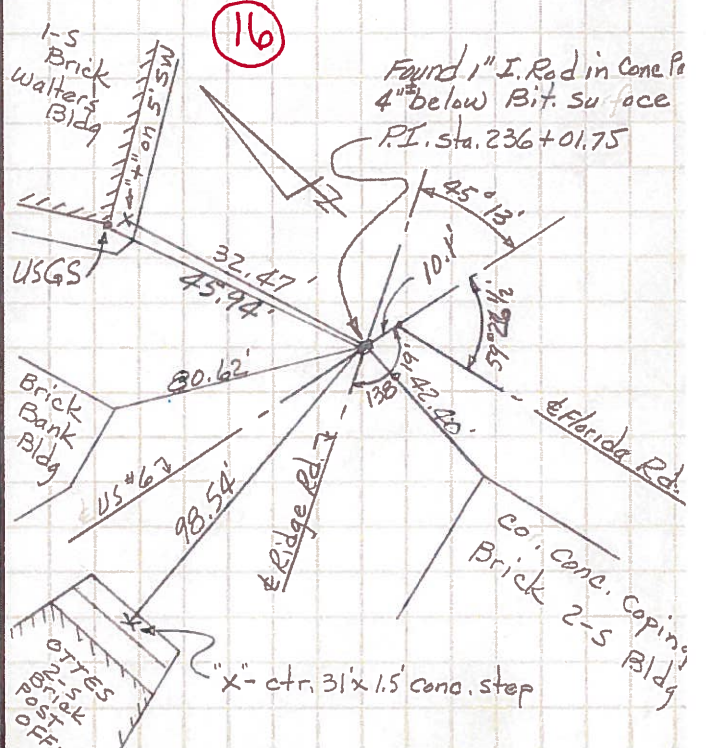 16
1-S
Brick
Walter's
Bldg
"+" on 5' SW
Found 1" I. Rod in Conc
4"± below Bit. surface
P.I. sta. 236+01.75
45° 13'
USGS
32.47'
45.94'
10.1'
59° 26 1/2'
80.62'
138° 9'
42.40'
Brick
Bank
Bldg
US #6
98.54'
℄ Ridge Rd.
℄ Florida Rd.
co. conc. coping
Brick 2-S Bldg
"X" - ctr. 31' x 1.5' conc. step
OTTES
2-S
Brick
POST
OFF.